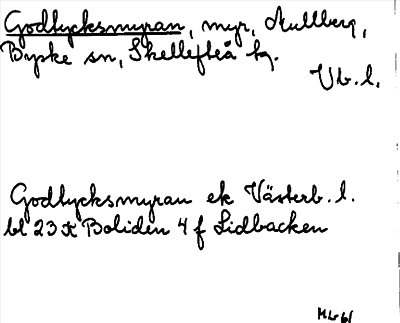 Godlycksmyran, myr, Mullberg,
Byske sn, Skellefteå kg.
Vb. l.
Godlycksmyran ek Västerb. l.
bl 23 K Boliden 4 f Lidbacken